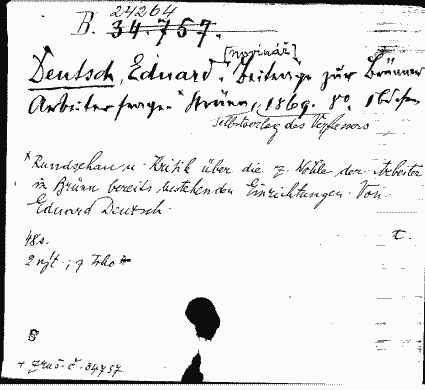 24264
B. 34.757.
[nyní nář]
Deutsch, Eduard. Beiträge zur Brünner
Arbeiterfrage.* Brünn, 1869. 8°.
Selbstverlag des Verfassers
* Rundschau u. Kritik über die z. Wohle der Arbeiter
in Brünn bereits bestehenden Einrichtungen. Von
Eduard Deutsch.
48 s.
t.
+ zruš. č. 34757